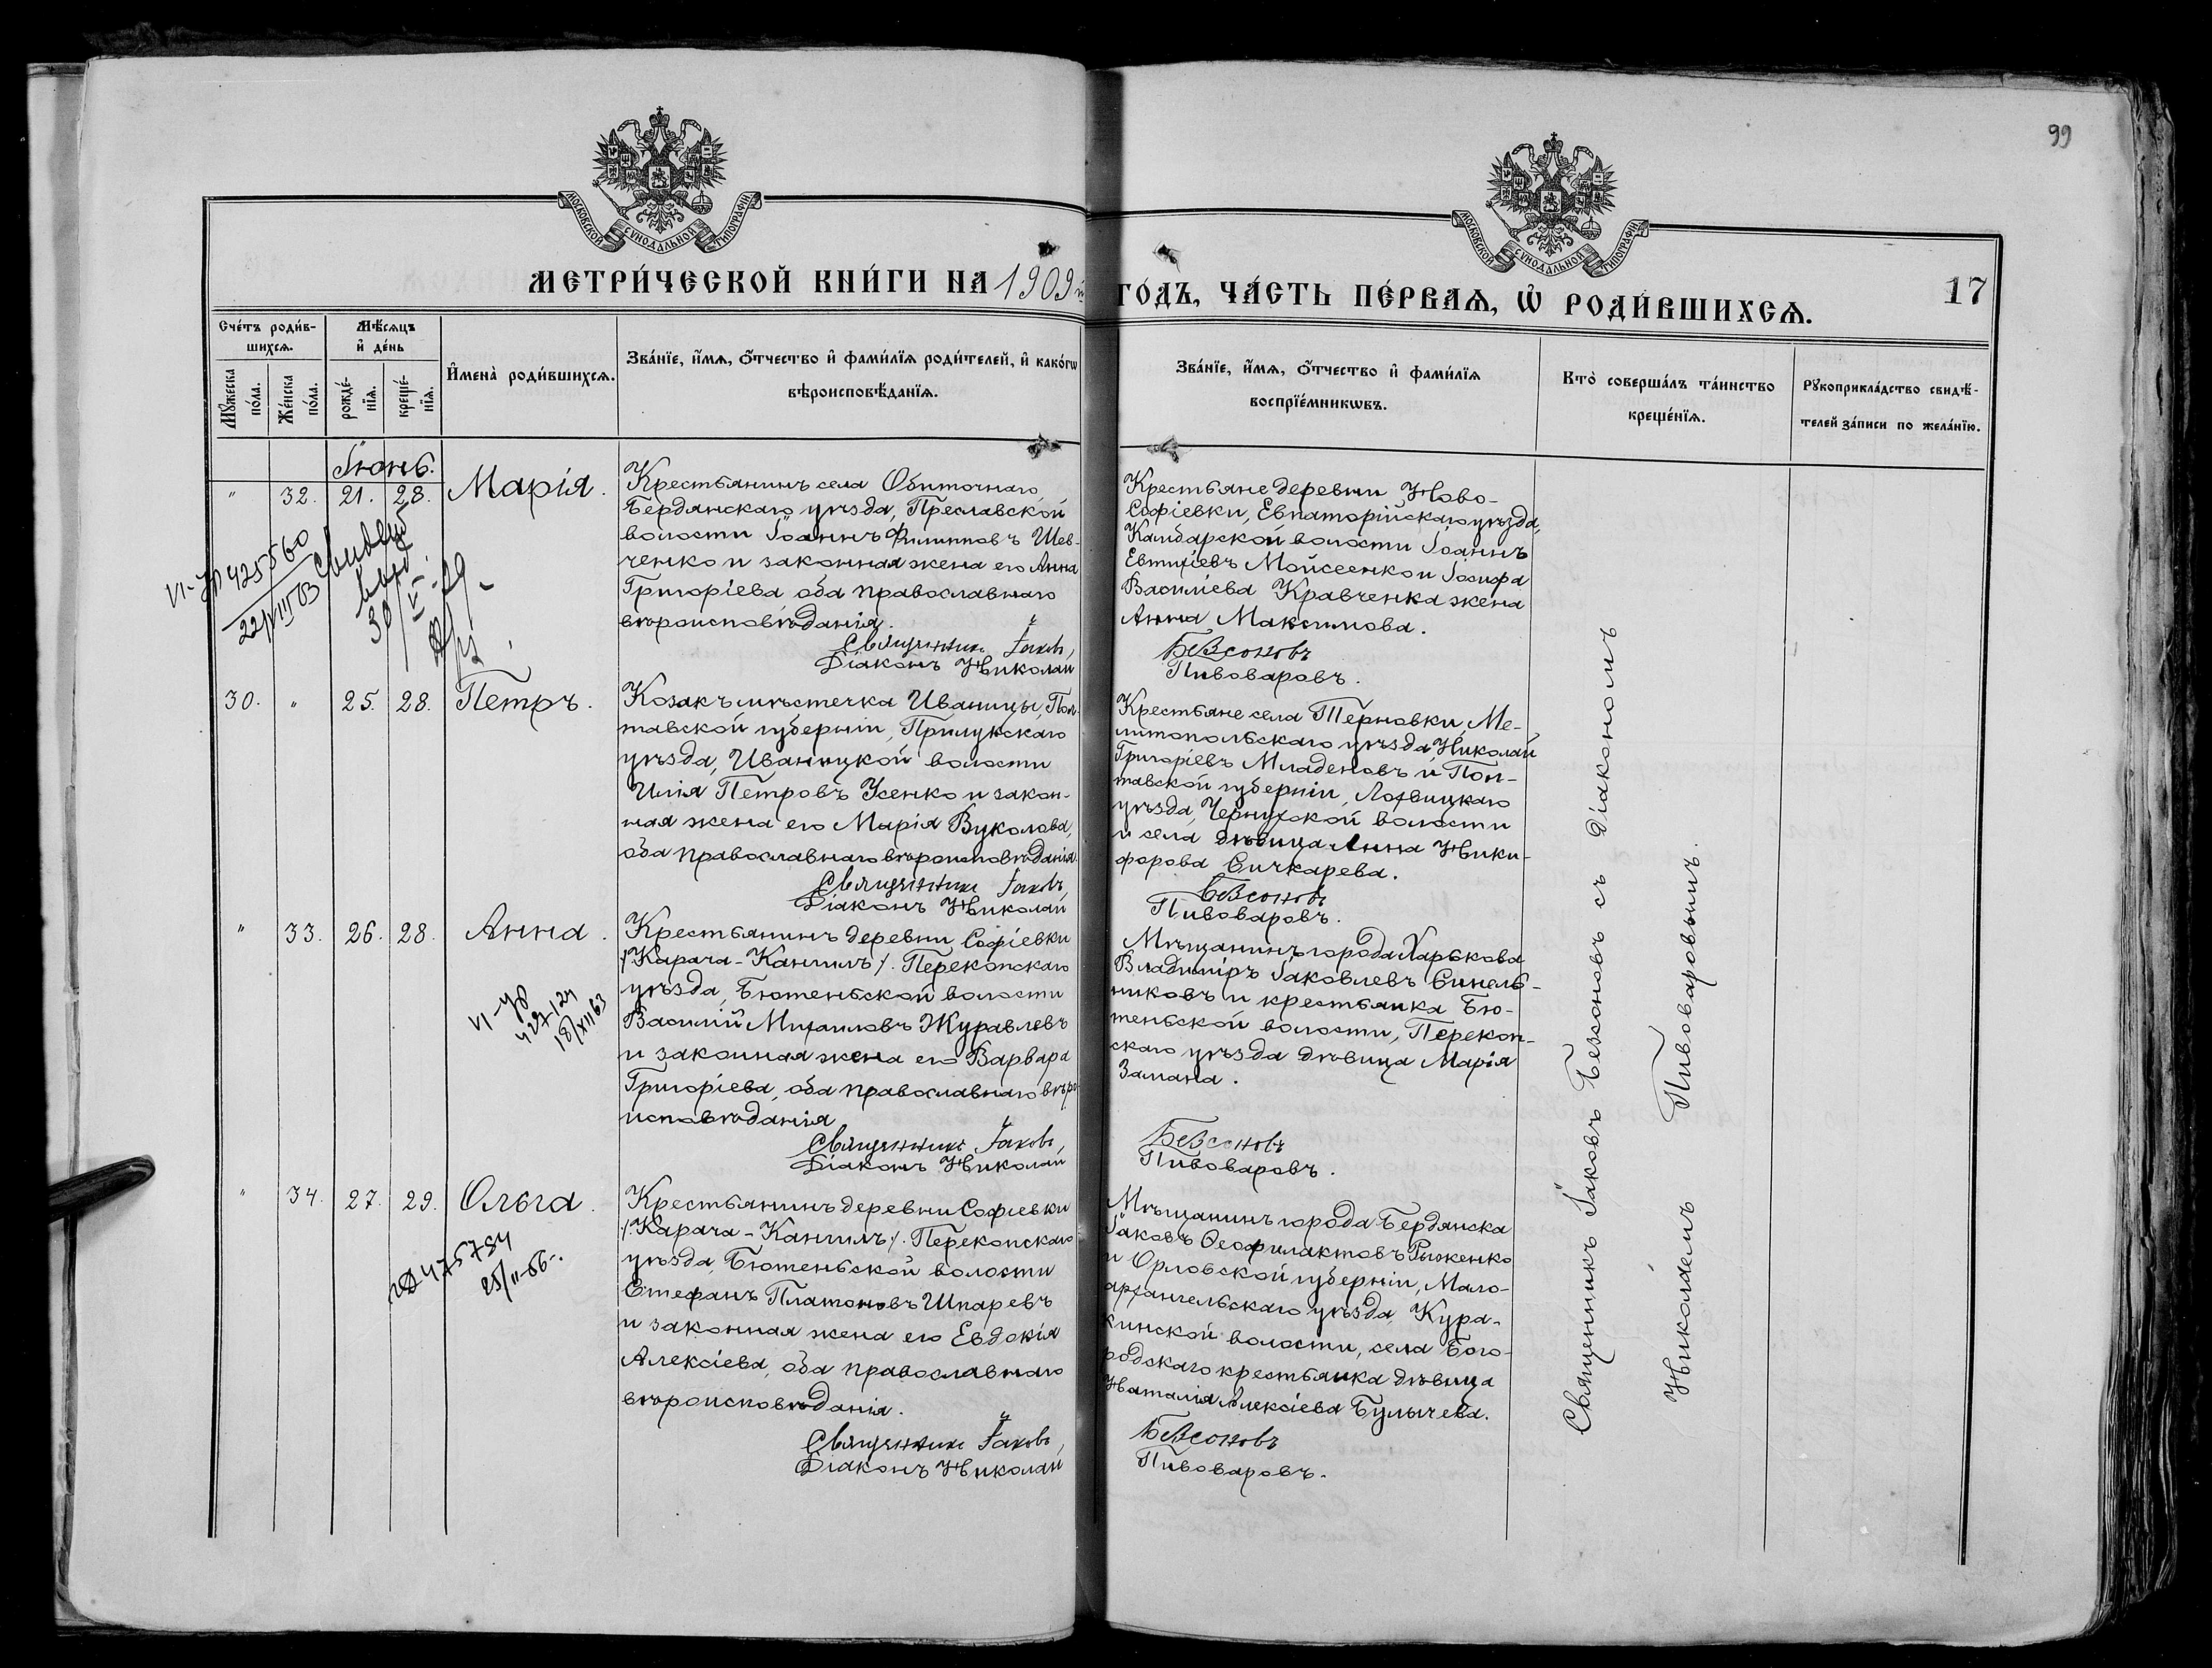 99
МОСКОВСКОЙ СѴНОДАЛЬНОЙ ТИПОГРАФІИ
МОСКОВСКОЙ СѴНОДАЛЬНОЙ ТИПОГРАФІИ
МЕТРИ́ЧЕСКОЙ КНИ́ГИ НА 1909й ГО́ДЪ, ЧА́СТЬ ПЕ́РВАѦ, Ѡ҆ РОДИ́ВШИХСѦ.
17
Сче́тъ роди́в-
шихсѧ.
Мѣ́сѧцъ
и҆ де́нь
Мꙋ́жеска по́ла.
Же́нска по́ла.
рожде́-
нїѧ.
креще́-
нїѧ.
И҆мена̀ роди́вшихсѧ.
Зва́нїе, и҆́мѧ, ѻ҆́тчество и҆ фами́лїѧ роди́телей, и҆ како́гѡ
вѣроисповѣ́данїѧ.
Зва́нїе, и҆́мѧ, ѻ҆́тчество и҆ фами́лїѧ
воспрїе́мникѡвъ.
Кто̀ соверша́лъ та́инство
креще́нїѧ.
Рꙋкоприкла́дство свидѣ́-
телей за́писи по жела́нїю.
Іюнь.
" 32. 21. 28. Марія.
Крестьянинъ села Обиточнаго,
Бердянскаго уѣзда, Преславской
волости Іоаннъ Филипповъ Шев-
ченко и законная жена его Анна
Григоріева оба православнаго
вѣроисповѣданія.
Священникъ Іаковъ
Діаконъ Николай
Крестьяне деревни Ново-
Софіевки, Евпаторійскаго уѣзда,
Камбарской волости Іоаннъ
Евтихіевъ Мойсеенко и Іосифа
Василіева Кравченка жена
Анна Максимова.
Безсоновъ
Пивоваровъ.
VI-УР 425560
22/VIII 63
30/V-29
30. " 25. 28. Петръ.
Козакъ мѣстечка Иваницы, Пол-
тавской губерніи, Прилукскаго
уѣзда, Иваницкой волости
Илія Петровъ Усенко и закон-
ная жена его Марія Вуколова,
оба православнаго вѣроисповѣданія.
Священникъ Іаковъ,
Діаконъ Николай
Крестьяне села Терновки, Ме-
литопольскаго уѣзда, Николай
Григоріевъ Младеновъ и Пол-
тавской губерніи, Лохвицкаго
уѣзда, Чернухской волости
и села дѣвица Анна Ники-
форова Сичкарева.
Безсоновъ
Пивоваровъ.
" 33. 26. 28. Анна.
Крестьянинъ деревни Софіевки
/Карача-Кангилъ/. Перекопскаго
уѣзда, Бютеньской волости
Василій Михаиловъ Журавлевъ
и законная жена его Варвара
Григоріева, оба православнаго вѣро-
исповѣданія
Священникъ Іаковъ,
Діаконъ Николай
Мѣщанинъ города Харькова
Владиміръ Іаковлевъ Синель-
никовъ и крестьянка Бю-
теньской волости, Перекоп-
скаго уѣзда дѣвица Марія
Замана.
Безсоновъ
Пивоваровъ.
VI-УР
427124
18/XII 63
" 34. 27. 29. Ольга.
Крестьянинъ деревни Софіевки
/.Карача-Кангилъ/. Перекопскаго
уѣзда, Бютеньской волости
Стефанъ Платоновъ Шпаревъ
и законная жена его Евдокія
Алексіева, оба православнаго
вѣроисповѣданія.
Священникъ Іаковъ,
Діаконъ Николай
Мѣщанинъ города Бердянска
Іаковъ Ѳеофилактовъ Рыженко
и Орловской губерніи, Мало-
архангельскаго уѣзда, Кура-
кинской волости, села Бого-
родскаго крестьянка дѣвица
Наталія Алексіева Булычева.
Безсоновъ
Пивоваровъ.
475784
25/II-66.
Священникъ Іаковъ Безсоновъ съ діакономъ
Николаемъ Пивоваровымъ.